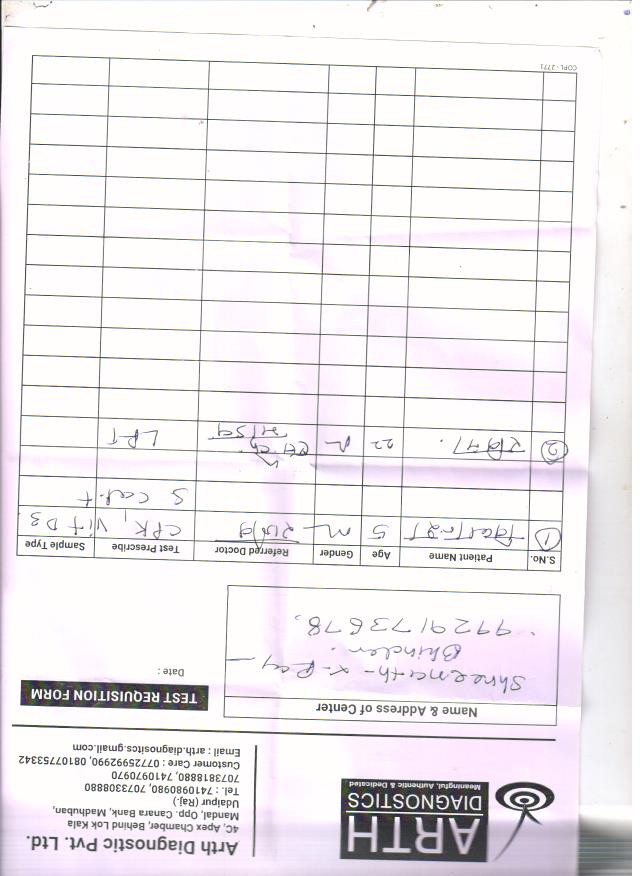 ARTH
DIAGNOSTICS
Meaningful, Authentic & Dedicated
Arth Diagnostic Pvt. Ltd.
4C, Apex Chamber, Behind Lok Kala
Mandal, Opp. Canara Bank, Madhuban,
Udaipur (Raj.)
Tel. : 7410980980, 7073308880
7073818880, 7410970970
Customer Care : 07725992990, 08107753342
Email : arth.diagnositics.gmail.com
Name & Address of Center
Shreenath-x-Ray
Bhinder.
9929173678.
TEST REQUISITION FORM
Date :
S.No. Patient Name Age Gender Referred Doctor Test Prescribe Sample Type
1 5 M CPK, Vit D3
S Cal.
2 22 M LFT
COPL - 2771